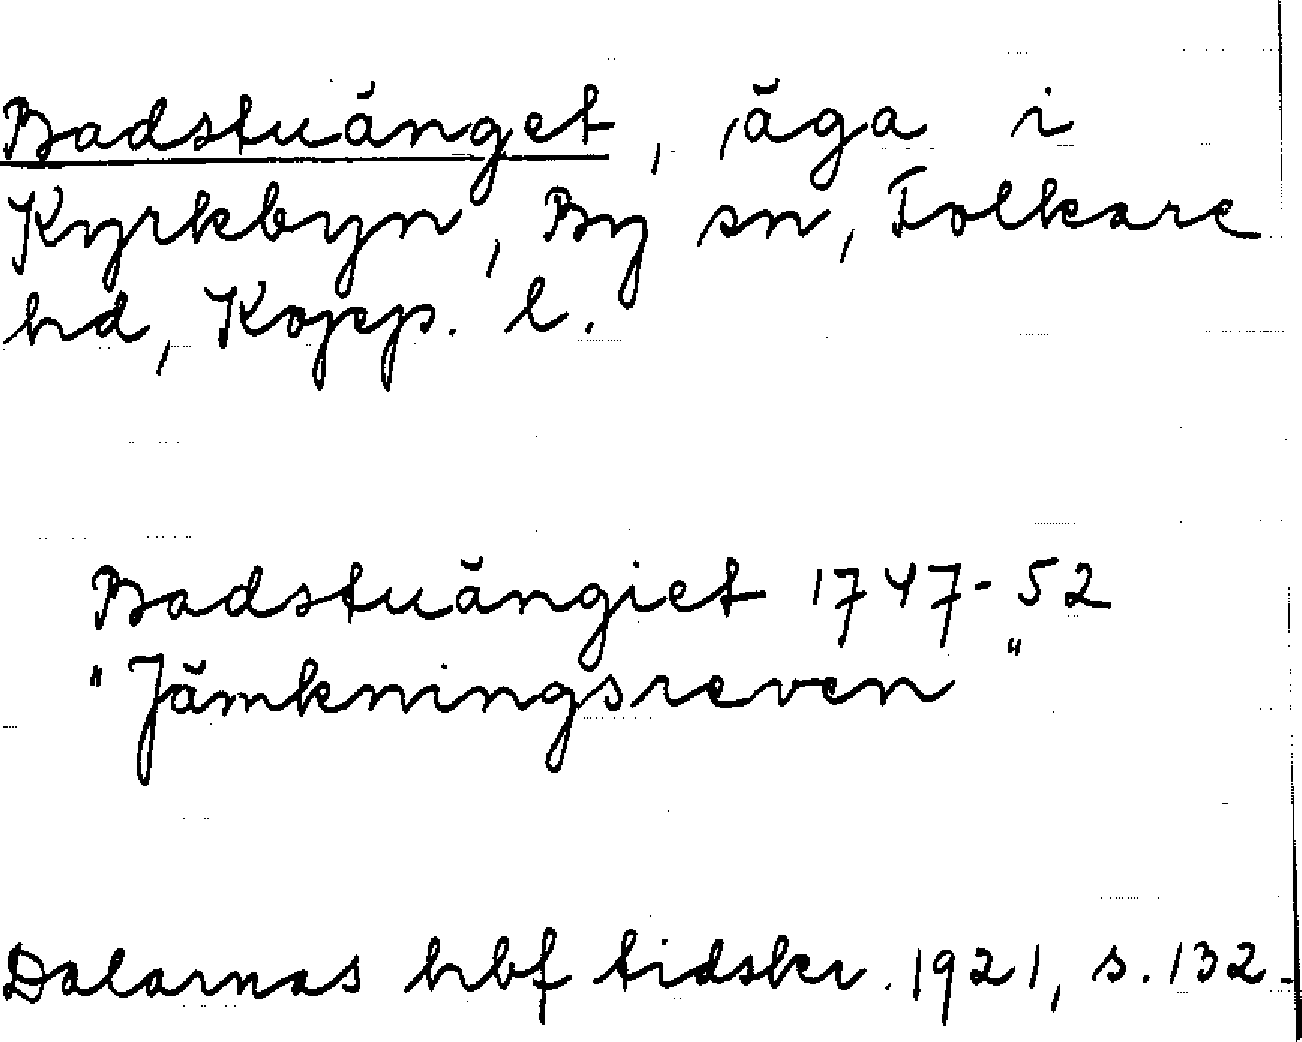 Badstuänget, äga i
Kyrkbyn, By sn, Folkare
hd, Kopp. l.
Badstuängiet 1747-52
"Jämkningsreven"
Dalarnas hbf tidskr. 1921, s. 132.